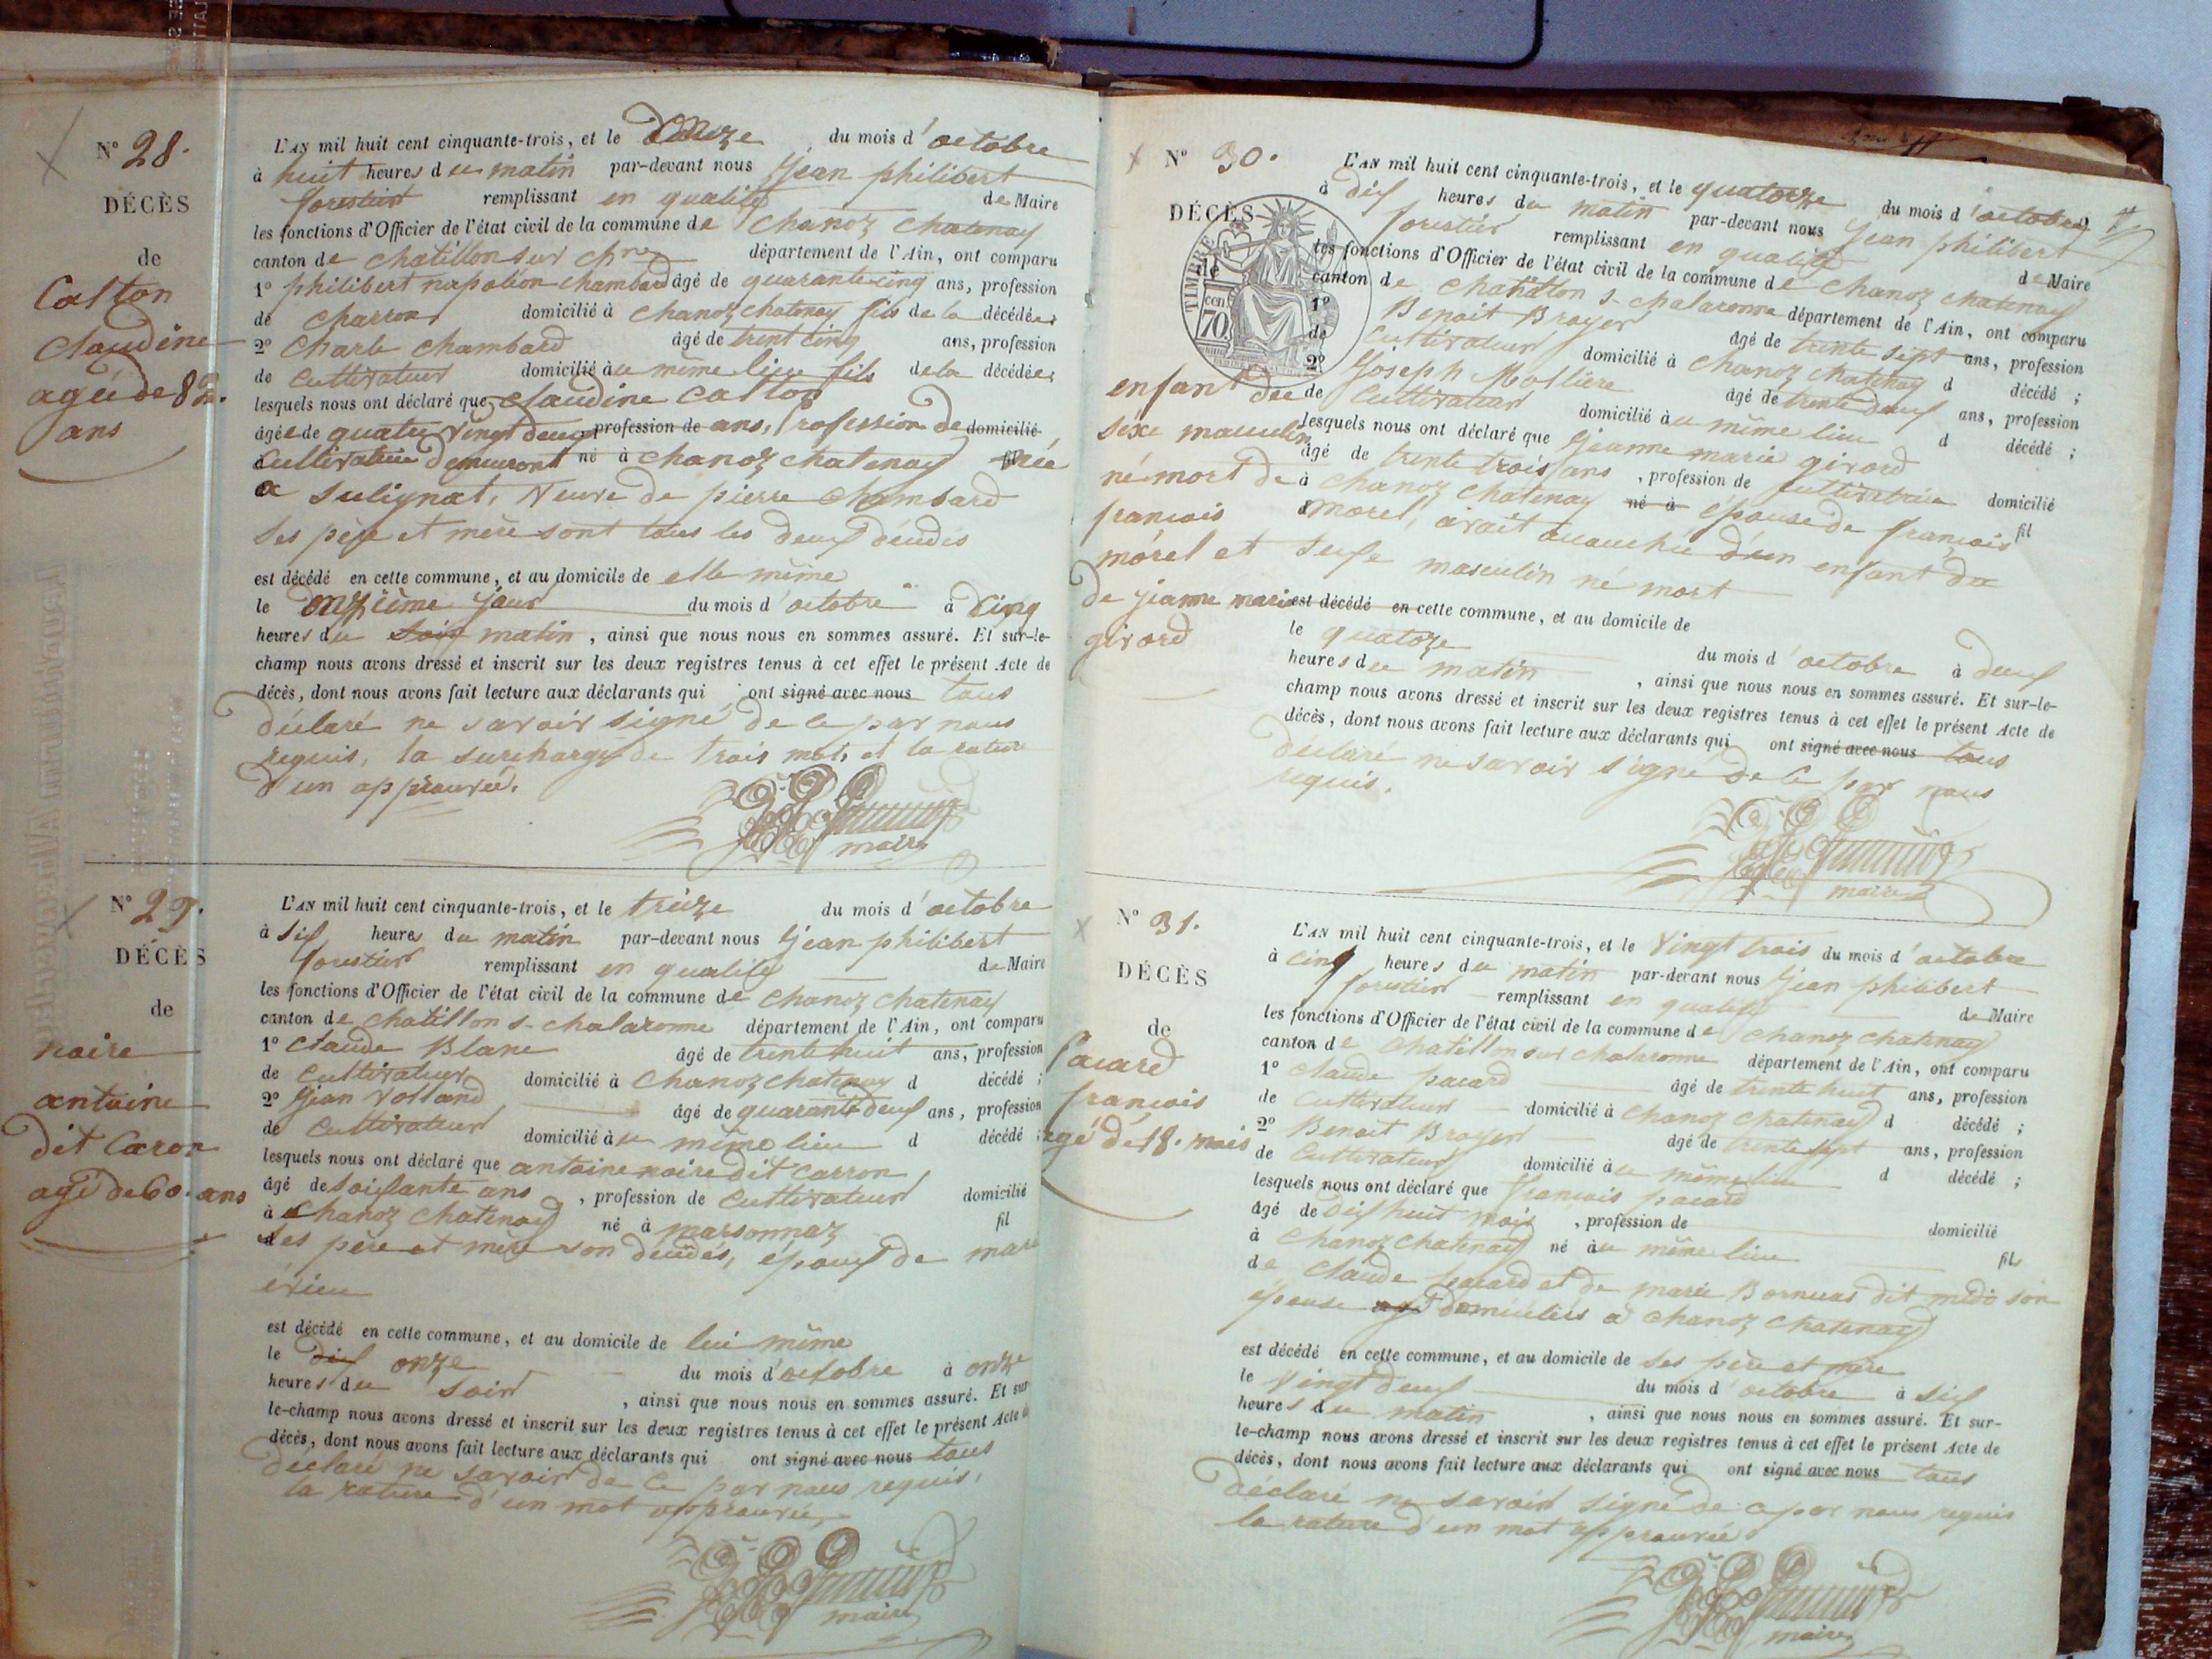 N° 28.
DÉCÈS
de
Catton
Claudine
agée de 82.
ans
L'AN mil huit cent cinquante-trois, et le onze du mois d'octobre
à huit heures du matin par-devant nous Jean philibert
forestier remplissant en qualité de Maire
les fonctions d'Officier de l'état civil de la commune de Chanoz Chatenay
canton de Chatillon sur Chne département de l'Ain, ont comparu
1° philibert napoléon Chambard âgé de quarante cinq ans, profession
de charron domicilié à Chanoz chatenay fils de la décédée
2° Charle Chambard âgé de trent cinq ans, profession
de Cultivateur domicilié au même lieu fils de la décédée
lesquels nous ont déclaré que Claudine Catton
âgée de quatre vingt deux profession de ans, Profession de domicilié
Cultivatrice demeurant né à Chanoz Chatenay née
a Sulignat, Veuve de pierre Chambard
Ses père et mère sont tous les deux décédés
est décédé en cette commune, et au domicile de elle même
le onzième jour du mois d'octobre à cinq
heures du soir matin, ainsi que nous nous en sommes assuré. Et sur-le-
champ nous avons dressé et inscrit sur les deux registres tenus à cet effet le présent Acte de
décès, dont nous avons fait lecture aux déclarants qui ont signé avec nous tous
déclaré ne savoir signé de ce par nous
requis, la surcharge de trois mots et la rature
d'un approuvée.
maire
N° 29.
DÉCÈS
de
noire
antoine
dit Caron
agé de 60. ans
L'AN mil huit cent cinquante-trois, et le treize du mois d'octobre
à Six heures du matin par-devant nous Jean philibert
forestier remplissant en qualité de Maire
les fonctions d'Officier de l'état civil de la commune de Chanoz Chatenay
canton de Chatillon s-chalaronne département de l'Ain, ont comparu
1° Claude Blanc âgé de trente huit ans, profession
de Cultivateur domicilié à Chanoz chatenay d décédé ;
2° Jean Volland âgé de quarante deux ans, profession
de Cultivateur domicilié au même lieu d décédé ;
lesquels nous ont déclaré que antoine noire dit Carron
âgé de soixante ans, profession de Cultivateur domicilié
à Chanoz Chatenay né à marsonnaz fil
des père et mère son décédés, epoux de marie
érieu
est décédé en cette commune, et au domicile de lui même
le dix onze du mois d'octobre à onze
heures du Soir, ainsi que nous nous en sommes assuré. Et sur
le-champ nous avons dressé et inscrit sur les deux registres tenus à cet effet le présent Acte de
décès, dont nous avons fait lecture aux déclarants qui ont signé avec nous tous
déclaré ne savoir de ce par nous requis,
la rature d'un mot approuvée
maire
N° 30.
DÉCÈS
de
TIMBRE
cen.
70
enfant du
sexe masculin
né mort de
francois
morel et
de jeanne marie
girord
L'AN mil huit cent cinquante-trois, et le quatorze du mois d'octobre
à dix heures du matin par-devant nous Jean philibert
forestier remplissant en qualité de Maire
les fonctions d'Officier de l'état civil de la commune de Chanoz chatenay
canton de Chatillon s-chalaronne département de l'Ain, ont comparu
1° Benoit Broyer âgé de trente sept ans, profession
de Cultivateur domicilié à Chanoz chatenay d décédé ;
2° Joseph Mollière âgé de trente deux ans, profession
de Cultivateur domicilié au même lieu d décédé ;
lesquels nous ont déclaré que Jeanne marie girord
âgé de trente trois ans, profession de Cultivatrice domicilié
à Chanoz Chatenay né à épouse de francois fil
morel, avait accouchée d'un enfant du
Sexe masculin né mort
est décédé en cette commune, et au domicile de
le quatoze du mois d'octobre à deux
heures du matin, ainsi que nous nous en sommes assuré. Et sur-le-
champ nous avons dressé et inscrit sur les deux registres tenus à cet effet le présent Acte de
décès, dont nous avons fait lecture aux déclarants qui ont signé avec nous tous
déclaré ne savoir signé de ce par nous
requis.
maire
N° 31.
DÉCÈS
de
Pacard
francois
agé de 18. mois
L'AN mil huit cent cinquante-trois, et le Vingt trois du mois d'octobre
à cinq heures du matin par-devant nous Jean philibert
forestier remplissant en qualité de Maire
les fonctions d'Officier de l'état civil de la commune de Chanoz chatenay
canton de Chatillon sur chalaronne département de l'Ain, ont comparu
1° Claude pacard âgé de trente huit ans, profession
de Cultivateur domicilié à Chanoz Chatenay d décédé ;
2° Benoit Broyer âgé de trente sept ans, profession
de Cultivateur domicilié au même lieu d décédé ;
lesquels nous ont déclaré que francois pacard
âgé de dix huit mois, profession de domicilié
à Chanoz chatenay né au même lieu fils
de Claude pacard et de marie dit son
épouse domiciliés a Chanoz Chatenay
est décédé en cette commune, et au domicile de Ses père et mère
le Vingt deux du mois d'octobre à Six
heures du matin, ainsi que nous nous en sommes assuré. Et sur-
le-champ nous avons dressé et inscrit sur les deux registres tenus à cet effet le présent Acte de
décès, dont nous avons fait lecture aux déclarants qui ont signé avec nous tous
déclaré ne savoir signé de ce par nous requis
la rature d'un mot approuvée
maire